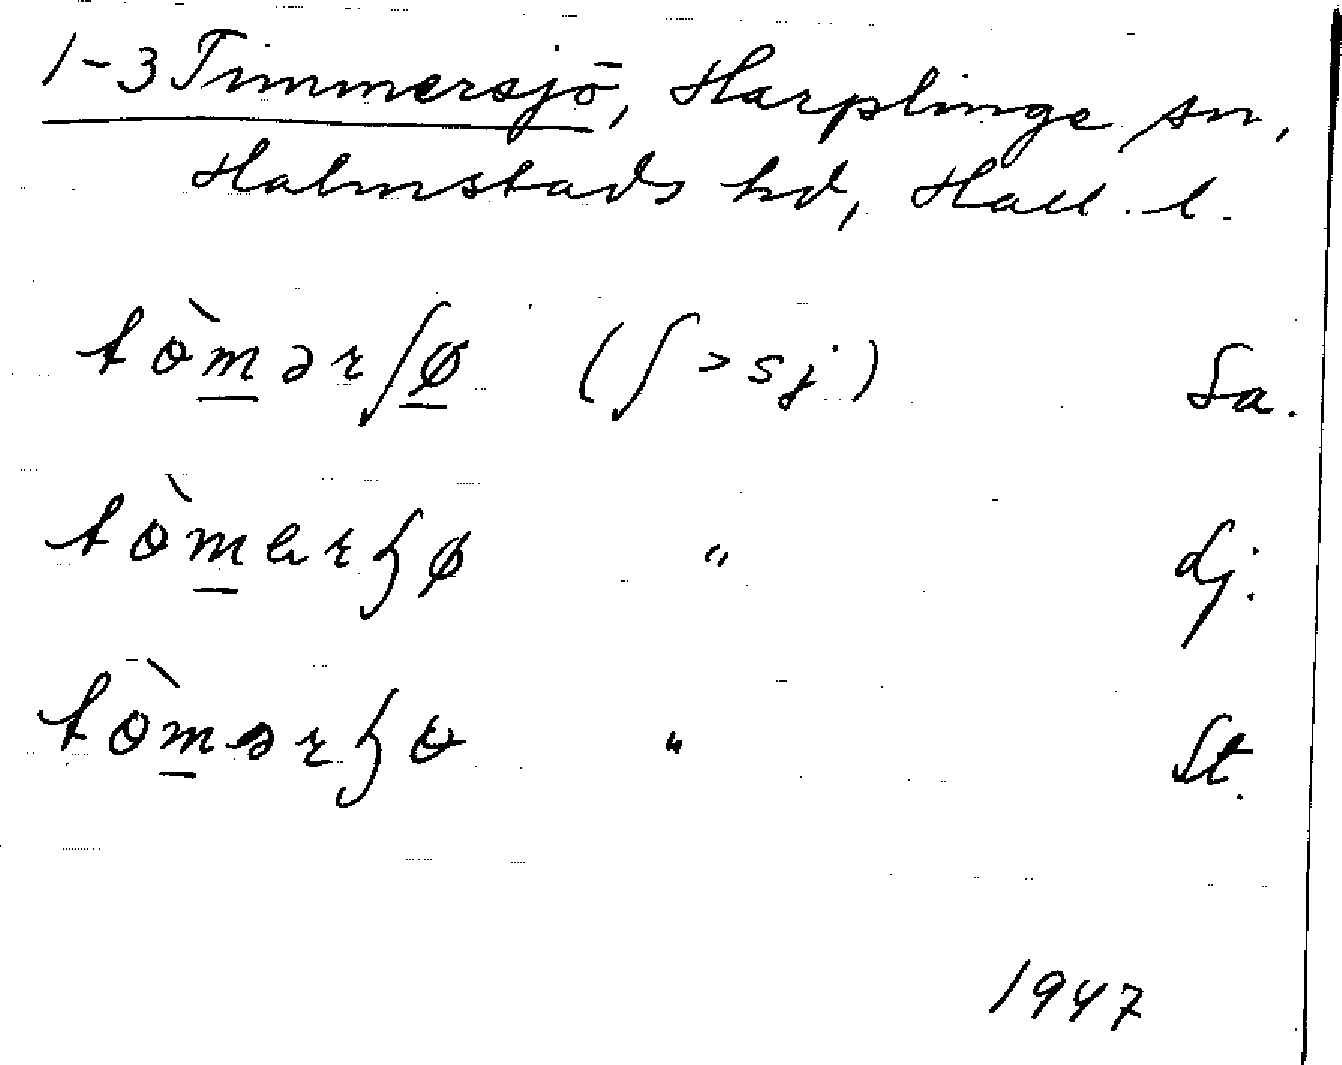 1-3 Timmersjö, Harplinge sn,
Halmstads hd, Hall. l.
tɵ̀m̲ərʃø̲ (ʃ > sj) Sa.
" dj.
" St.
1947